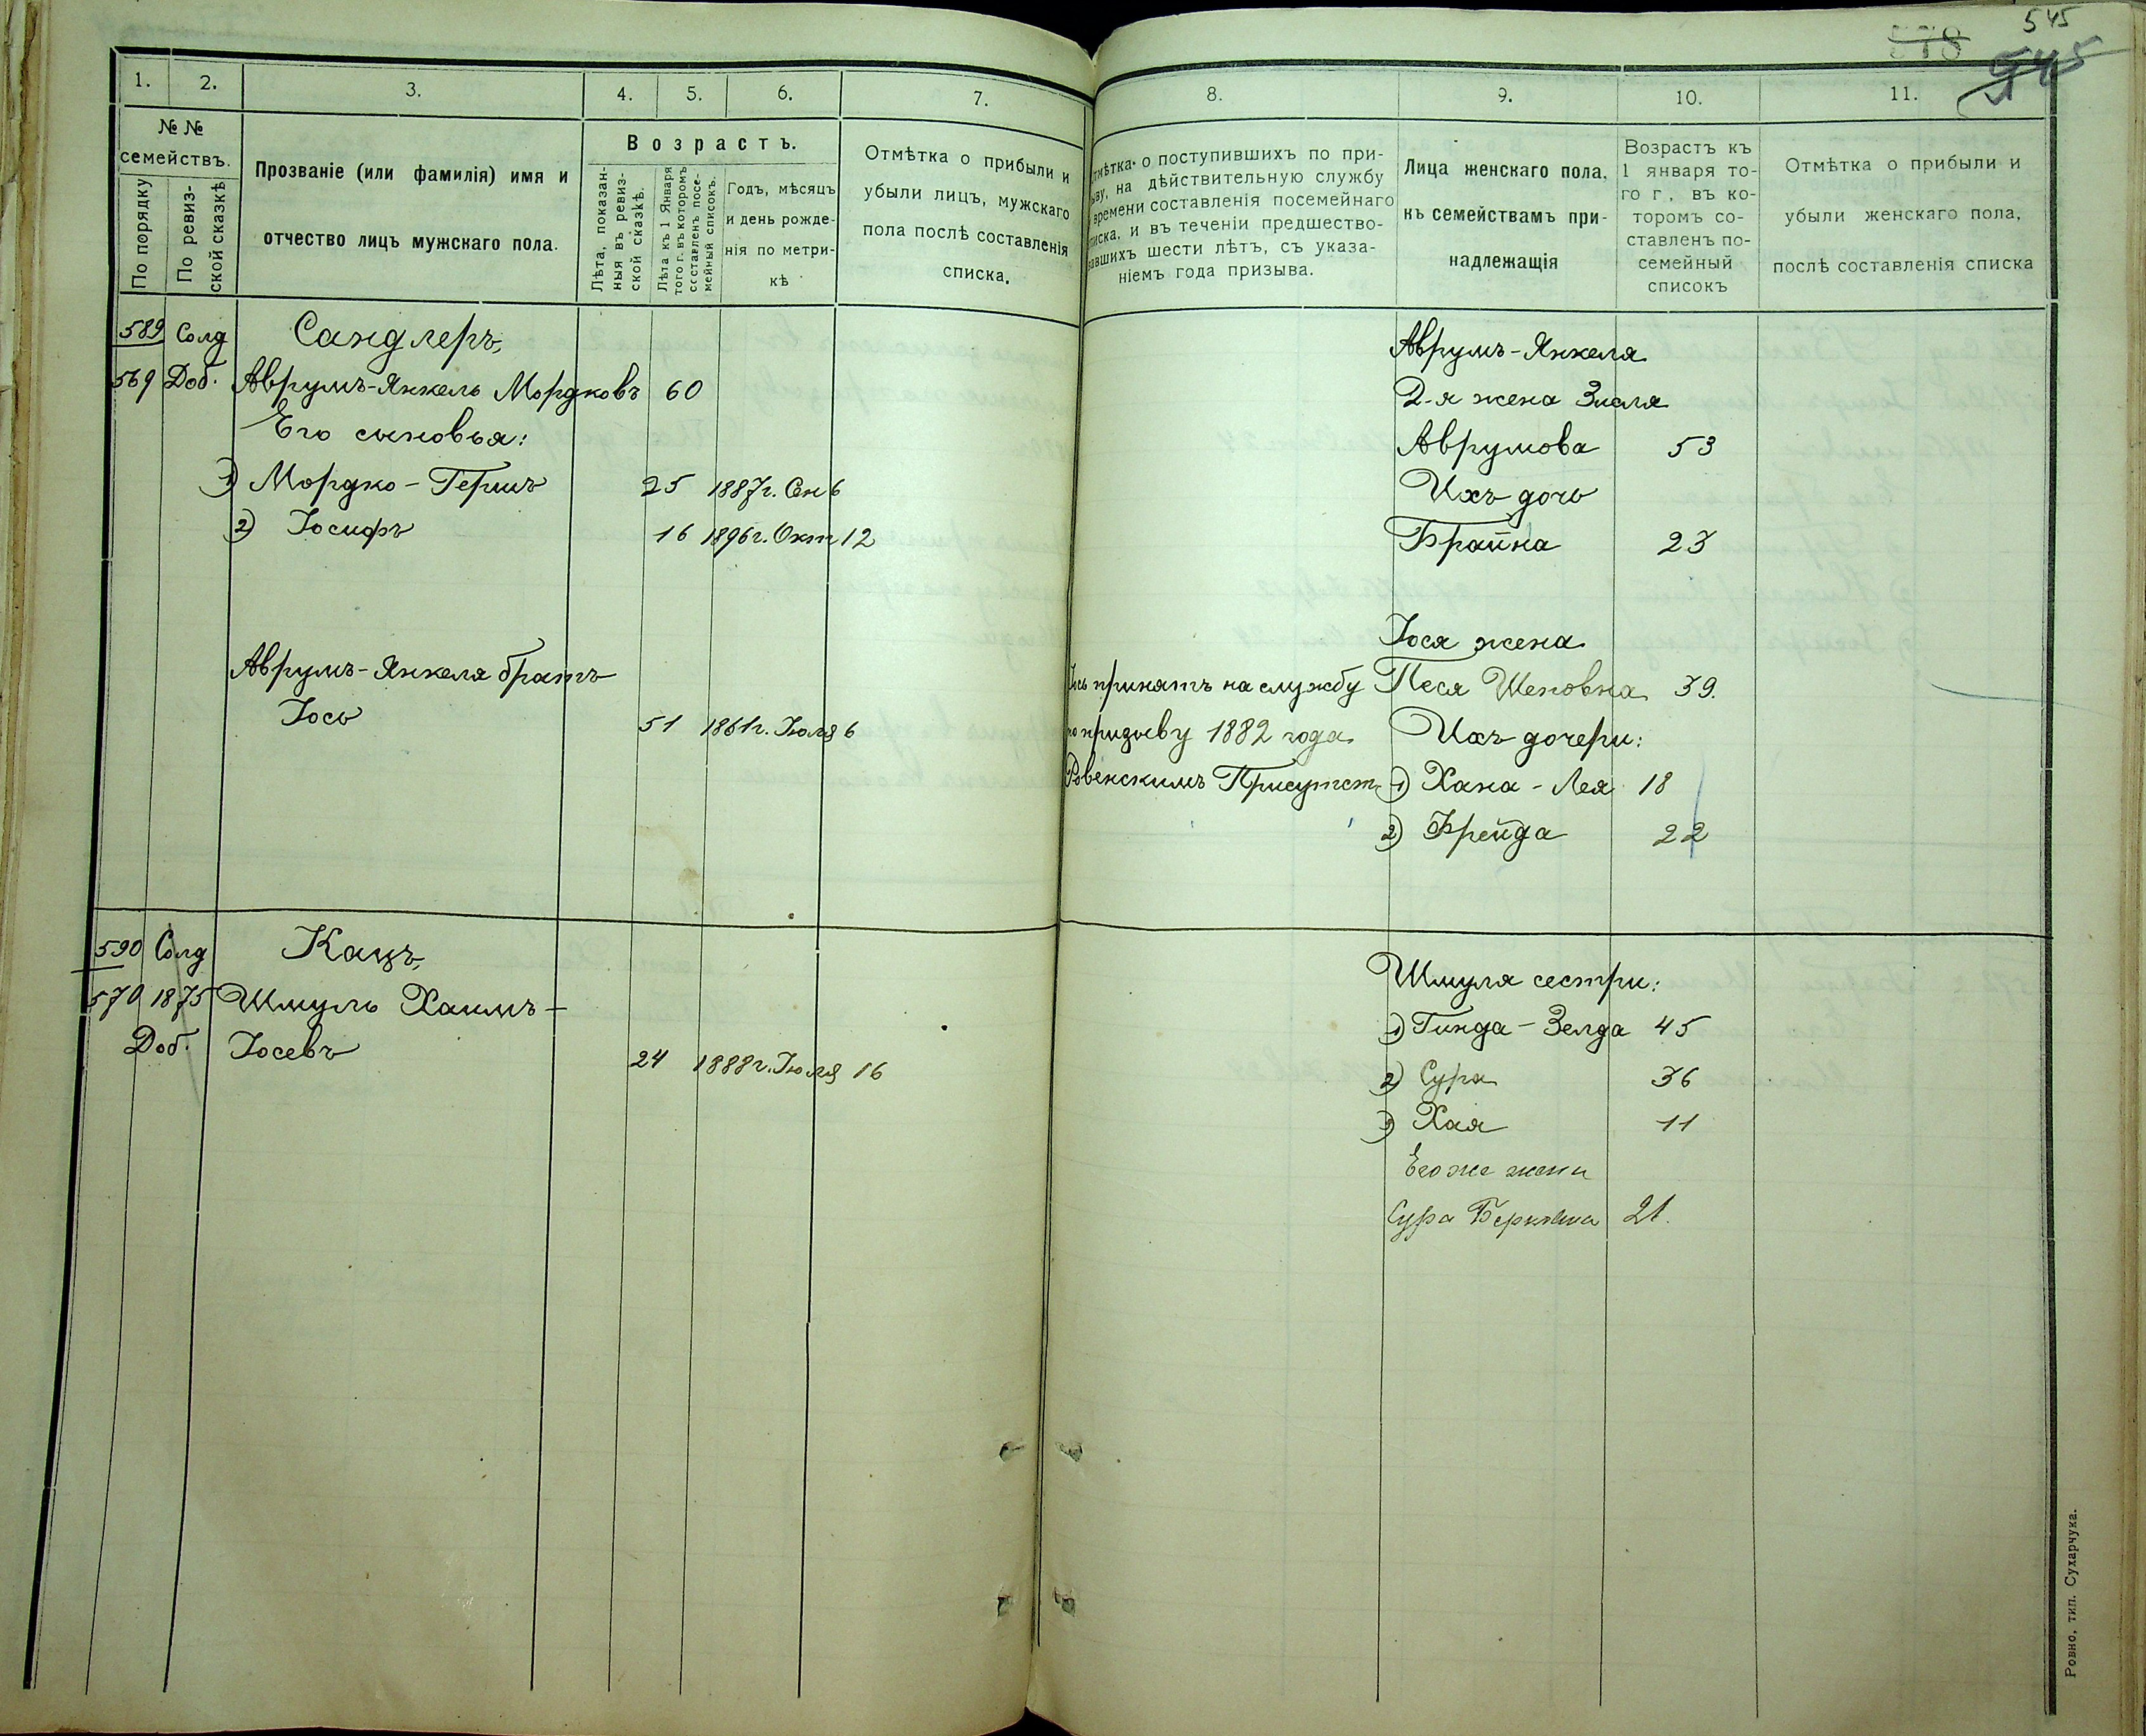 545
578
545
1.
2.
3.
4.
5.
6.
7.
№ №
семействъ.
По порядку
По ревиз-
ской сказкѣ
Прозваніе (или фамилія) имя и
отчество лицъ мужскаго пола.
Возрастъ.
Лѣта, показан-
ныя въ ревиз-
ской сказкѣ.
Лѣта къ 1 Января
того г. въ которомъ
составленъ посе-
мейный списокъ.
Годъ, мѣсяцъ
и день рожде-
нія по метри-
кѣ
Отмѣтка о прибыли и
убыли лицъ, мужскаго
пола послѣ составленія
списка.
589 Солд Сандлеръ,
569 Доб. Аврумъ-Янкель Мордковъ 60
Его сыновья:
1) Мордко-Гершъ 25 1887г. Сен 6
2) Іосифъ 16 1896г. Окт 12
Аврумъ-Янкеля братъ
Іось 51 1861г. Іюля 6
590 Солд Кацъ,
570 1875 Шмуль Хаимъ-
Доб. Іосевъ 24 1888г. Іюля 16
8.
9.
10.
11.
Отмѣтка о поступившихъ по при-
ыву, на дѣйствительную службу
времени составленія посемейнаго
писка, и въ теченіи предшество-
вавшихъ шести лѣтъ, съ указа-
ніемъ года призыва.
Лица женскаго пола,
къ семействамъ при-
надлежащія
Возрастъ къ
1 января то-
го г, въ ко-
торомъ со-
ставленъ по-
семейный
списокъ
Отмѣтка о прибыли и
убыли женскаго пола,
послѣ составленія списка
Аврумъ-Янкеля
2-я жена Зисля
Аврумова 53
Ихъ дочь
Брайна 23
Іося жена
Іось принятъ на службу Песя Шеповна 39.
по призыву 1882 года Ихъ дочери:
Ровенскимъ Присутст. 1) Хана-Лея 18
2) Фрейда 22
Шмуля сестри:
1) Гинда-Зелда 45
2) Сура 36
3) Хая 11
Его же жена
Сура Берковна 21.
Ровно, тип. Сухарчука.